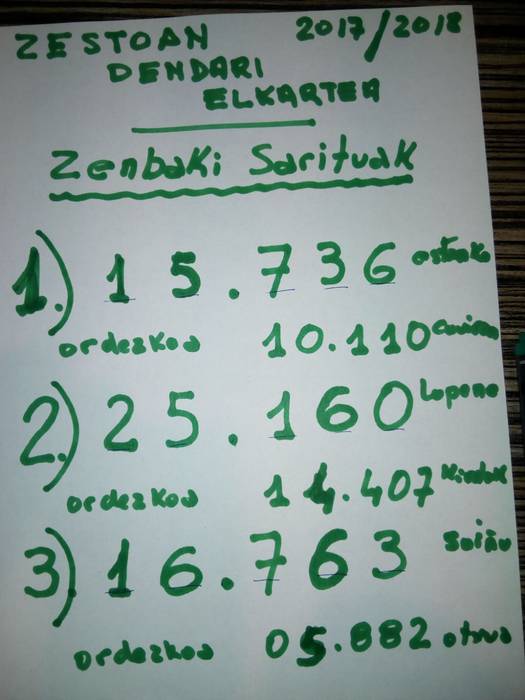 ZESTOAN 2017/2018
DENDARI
ELKARTEA
Zenbaki Sarituak
1.) 15.736
ordezkoa 10.110
2.) 25.160
ordezkoa 14.407
3) 16.763
ordezkoa 05.882